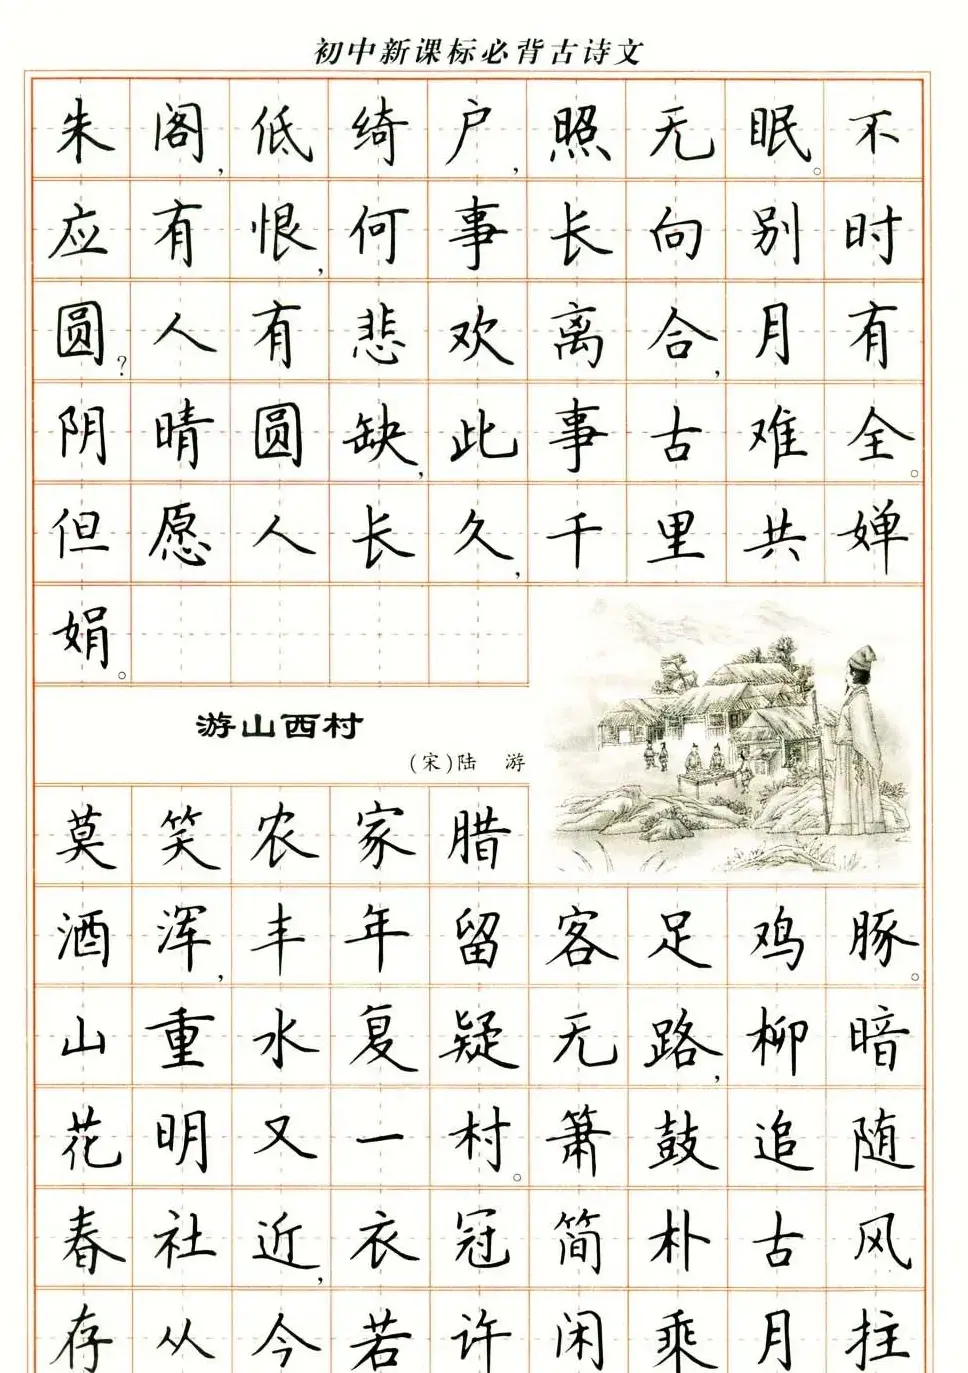 初中新课标必背古诗文
朱阁,低绮户,照无眠。不
应有恨,何事长向别时
圆?人有悲欢离合,月有
阴晴圆缺,此事古难全。
但愿人长久,千里共婵
娟。
游山西村
(宋)陆 游
莫笑农家腊
酒浑,丰年留客足鸡豚。
山重水复疑无路,柳暗
花明又一村。箫鼓追随
春社近,衣冠简朴古风
存从今若许闲乘月拄